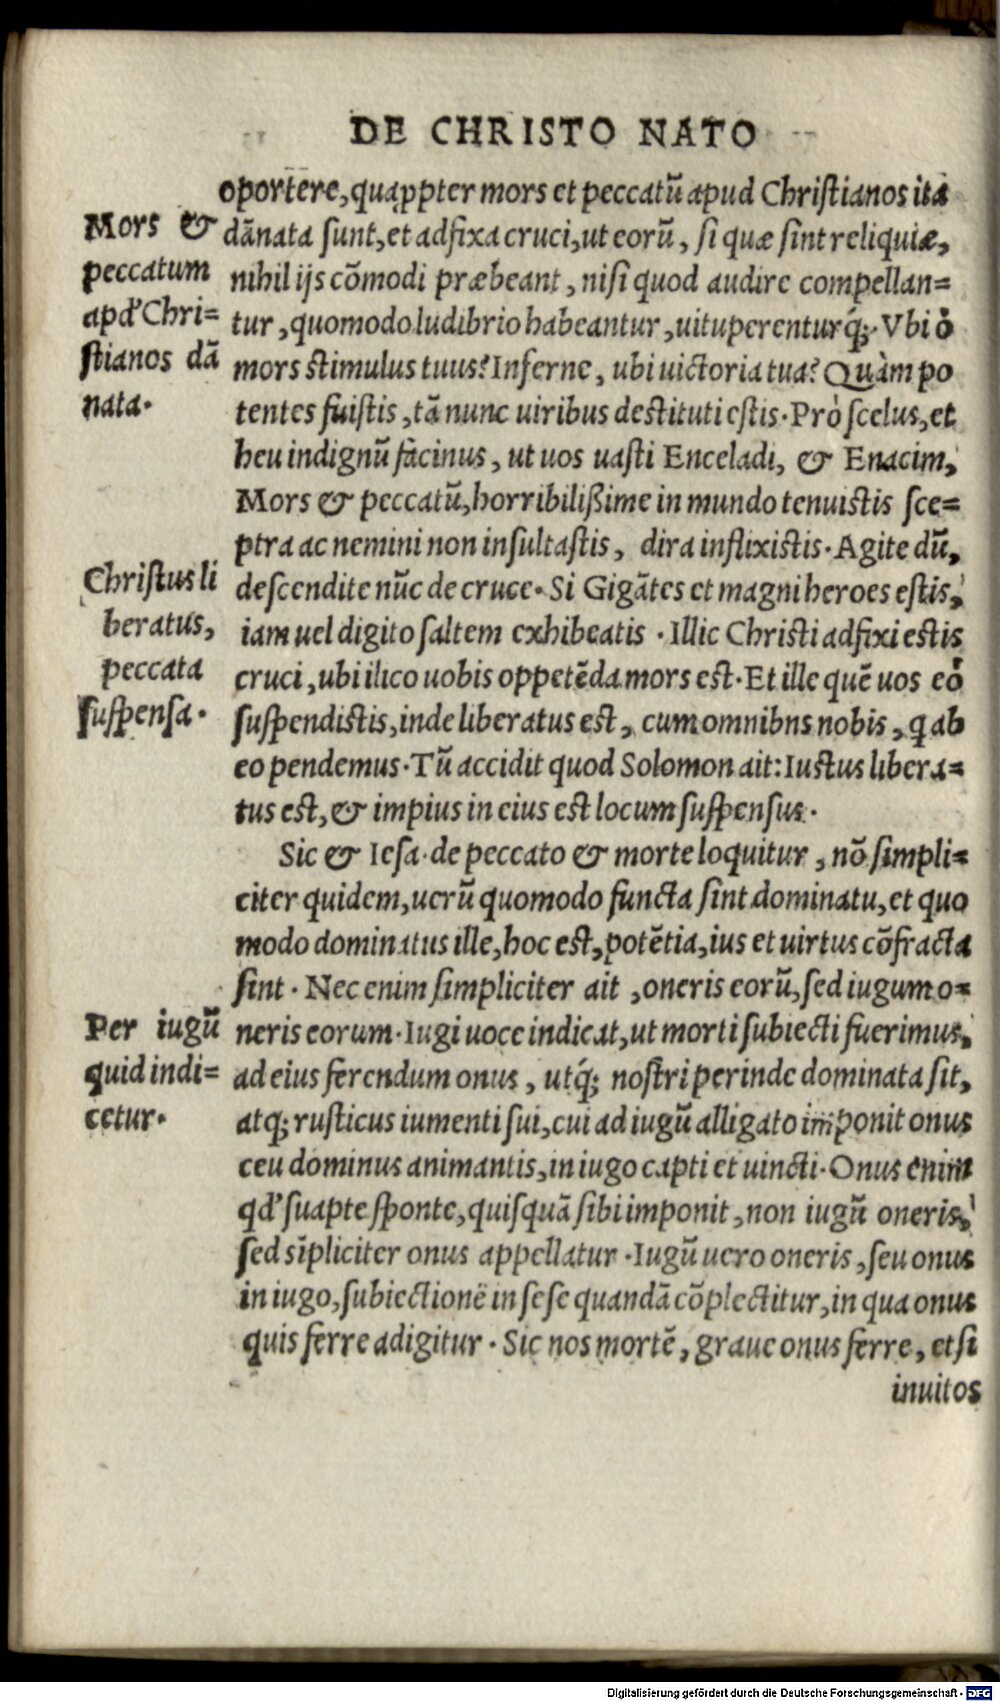 DE CHRISTO NATO
oportere, quapꝓter mors et peccatū apud Christianos ita
dānata sunt, et adfixa cruci, ut eorū, si quæ sint reliquiæ,
nihil ijs cōmodi præbeant, nisi quod audire compellan=
tur, quomodo ludibrio habeantur, uituperenturq́;. Vbi ò
mors stimulus tuus? Inferne, ubi uictoria tua? Quàm po
tentes fuistis, tā nunc uiribus destituti estis. Prò scelus, et
heu indignū facinus, ut uos uasti Enceladi, & Enacim,
Mors & peccatū, horribilißime in mundo tenuistis sce=
ptra ac nemini non insultastis, dira inflixistis. Agite dū,
descendite nūc de cruce. Si Gigātes et magni heroes estis,
iam uel digito saltem exhibeatis. Illic Christi adfixi estis
cruci, ubi ilico uobis oppetēda mors est. Et ille quē uos eò
suspendistis, inde liberatus est, cum omnibns nobis, q ab
eo pendemus. Tū accidit quod Solomon ait: Iustus libera=
tus est, & impius in eius est locum suspensus.
Sic & Iesa. de peccato & morte loquitur, nō simpli=
citer quidem, uerū quomodo functa sint dominatu, et quo
modo dominatus ille, hoc est, potētia, ius et uirtus cōfracta
sint. Nec enim simpliciter ait, oneris eorū, sed iugum o=
neris eorum. Iugi uoce indicat, ut morti subiecti fuerimus,
ad eius ferendum onus, utq́; nostri perinde dominata sit,
atq; rusticus iumenti sui, cui ad iugū alligato imponit onus
ceu dominus animantis, in iugo capti et uincti. Onus enim
qd' suapte sponte, quisquā sibi imponit, non iugū oneris,
sed sīpliciter onus appellatur. Iugū uero oneris, seu onus
in iugo, subiectionē in sese quandā cōplectitur, in qua onus
quis ferre adigitur. Sic nos mortē, graue onus ferre, etsi
inuitos
Mors &
peccatum
apd' Chri=
stianos dā
nata.
Christus li
beratus,
peccata
suspensa.
Per iugū
quid indi=
cetur.
Digitalisierung gefördert durch die Deutsche Forschungsgemeinschaft - DFG